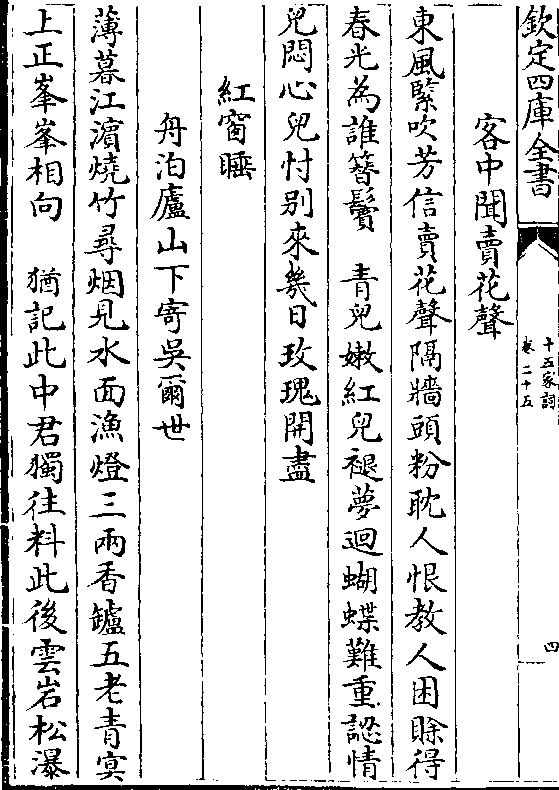 欽定四庫全書
十五家詞
卷二十五
四
客中聞賣花聲
東風緊吹芳信賣花聲隔牆頭粉耽人恨教人困賒得
春光為誰簪鬢　青兒嫩紅兒褪夢迴蝴蝶難重認情
兒悶心兒忖别來幾日玫瑰開盡
紅窗睡
舟泊廬山下寄吳爾世
薄暮江濵燒竹尋烟見水面漁燈三兩香鑪五老青㝠
上正峯峯相向　猶記此中君獨往料此後雲岩松瀑